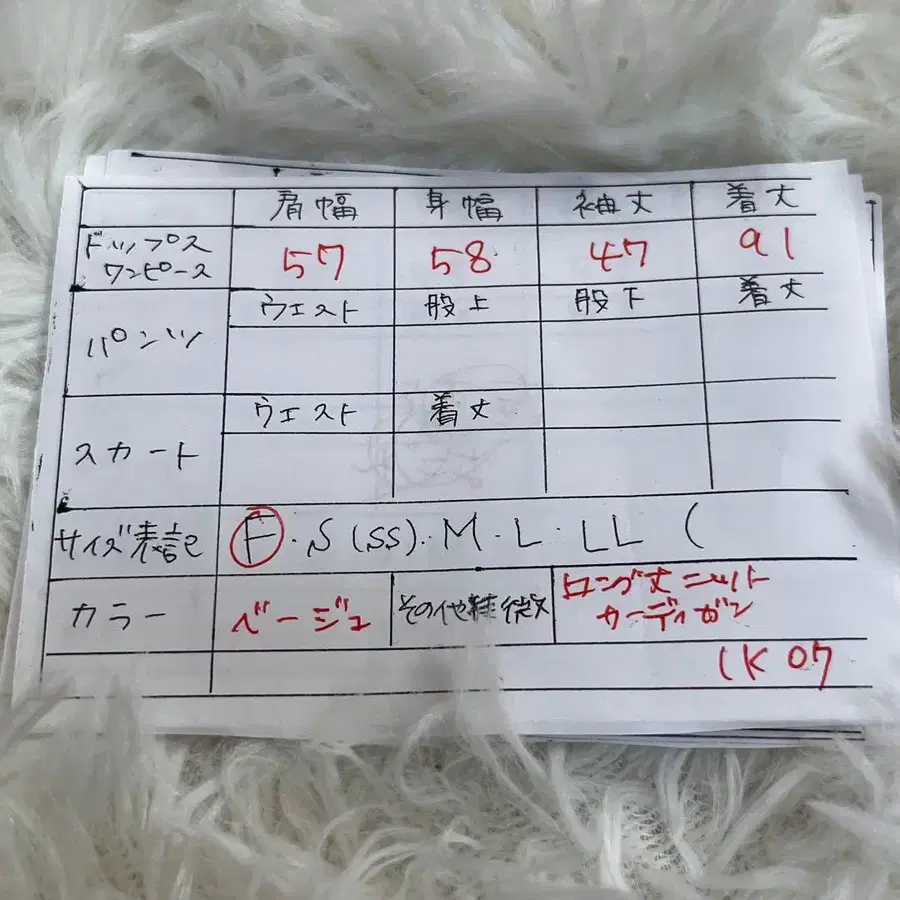 肩幅 身幅 袖丈 着丈
トップス
ワンピース 57 58 47 91
パンツ ウエスト 股上 股下 着丈
スカート ウエスト 着丈
サイズ表記 F・S(SS)・M・L・LL (
カラー ベージュ その他 ロング丈ニット
カーディガン
(K 07